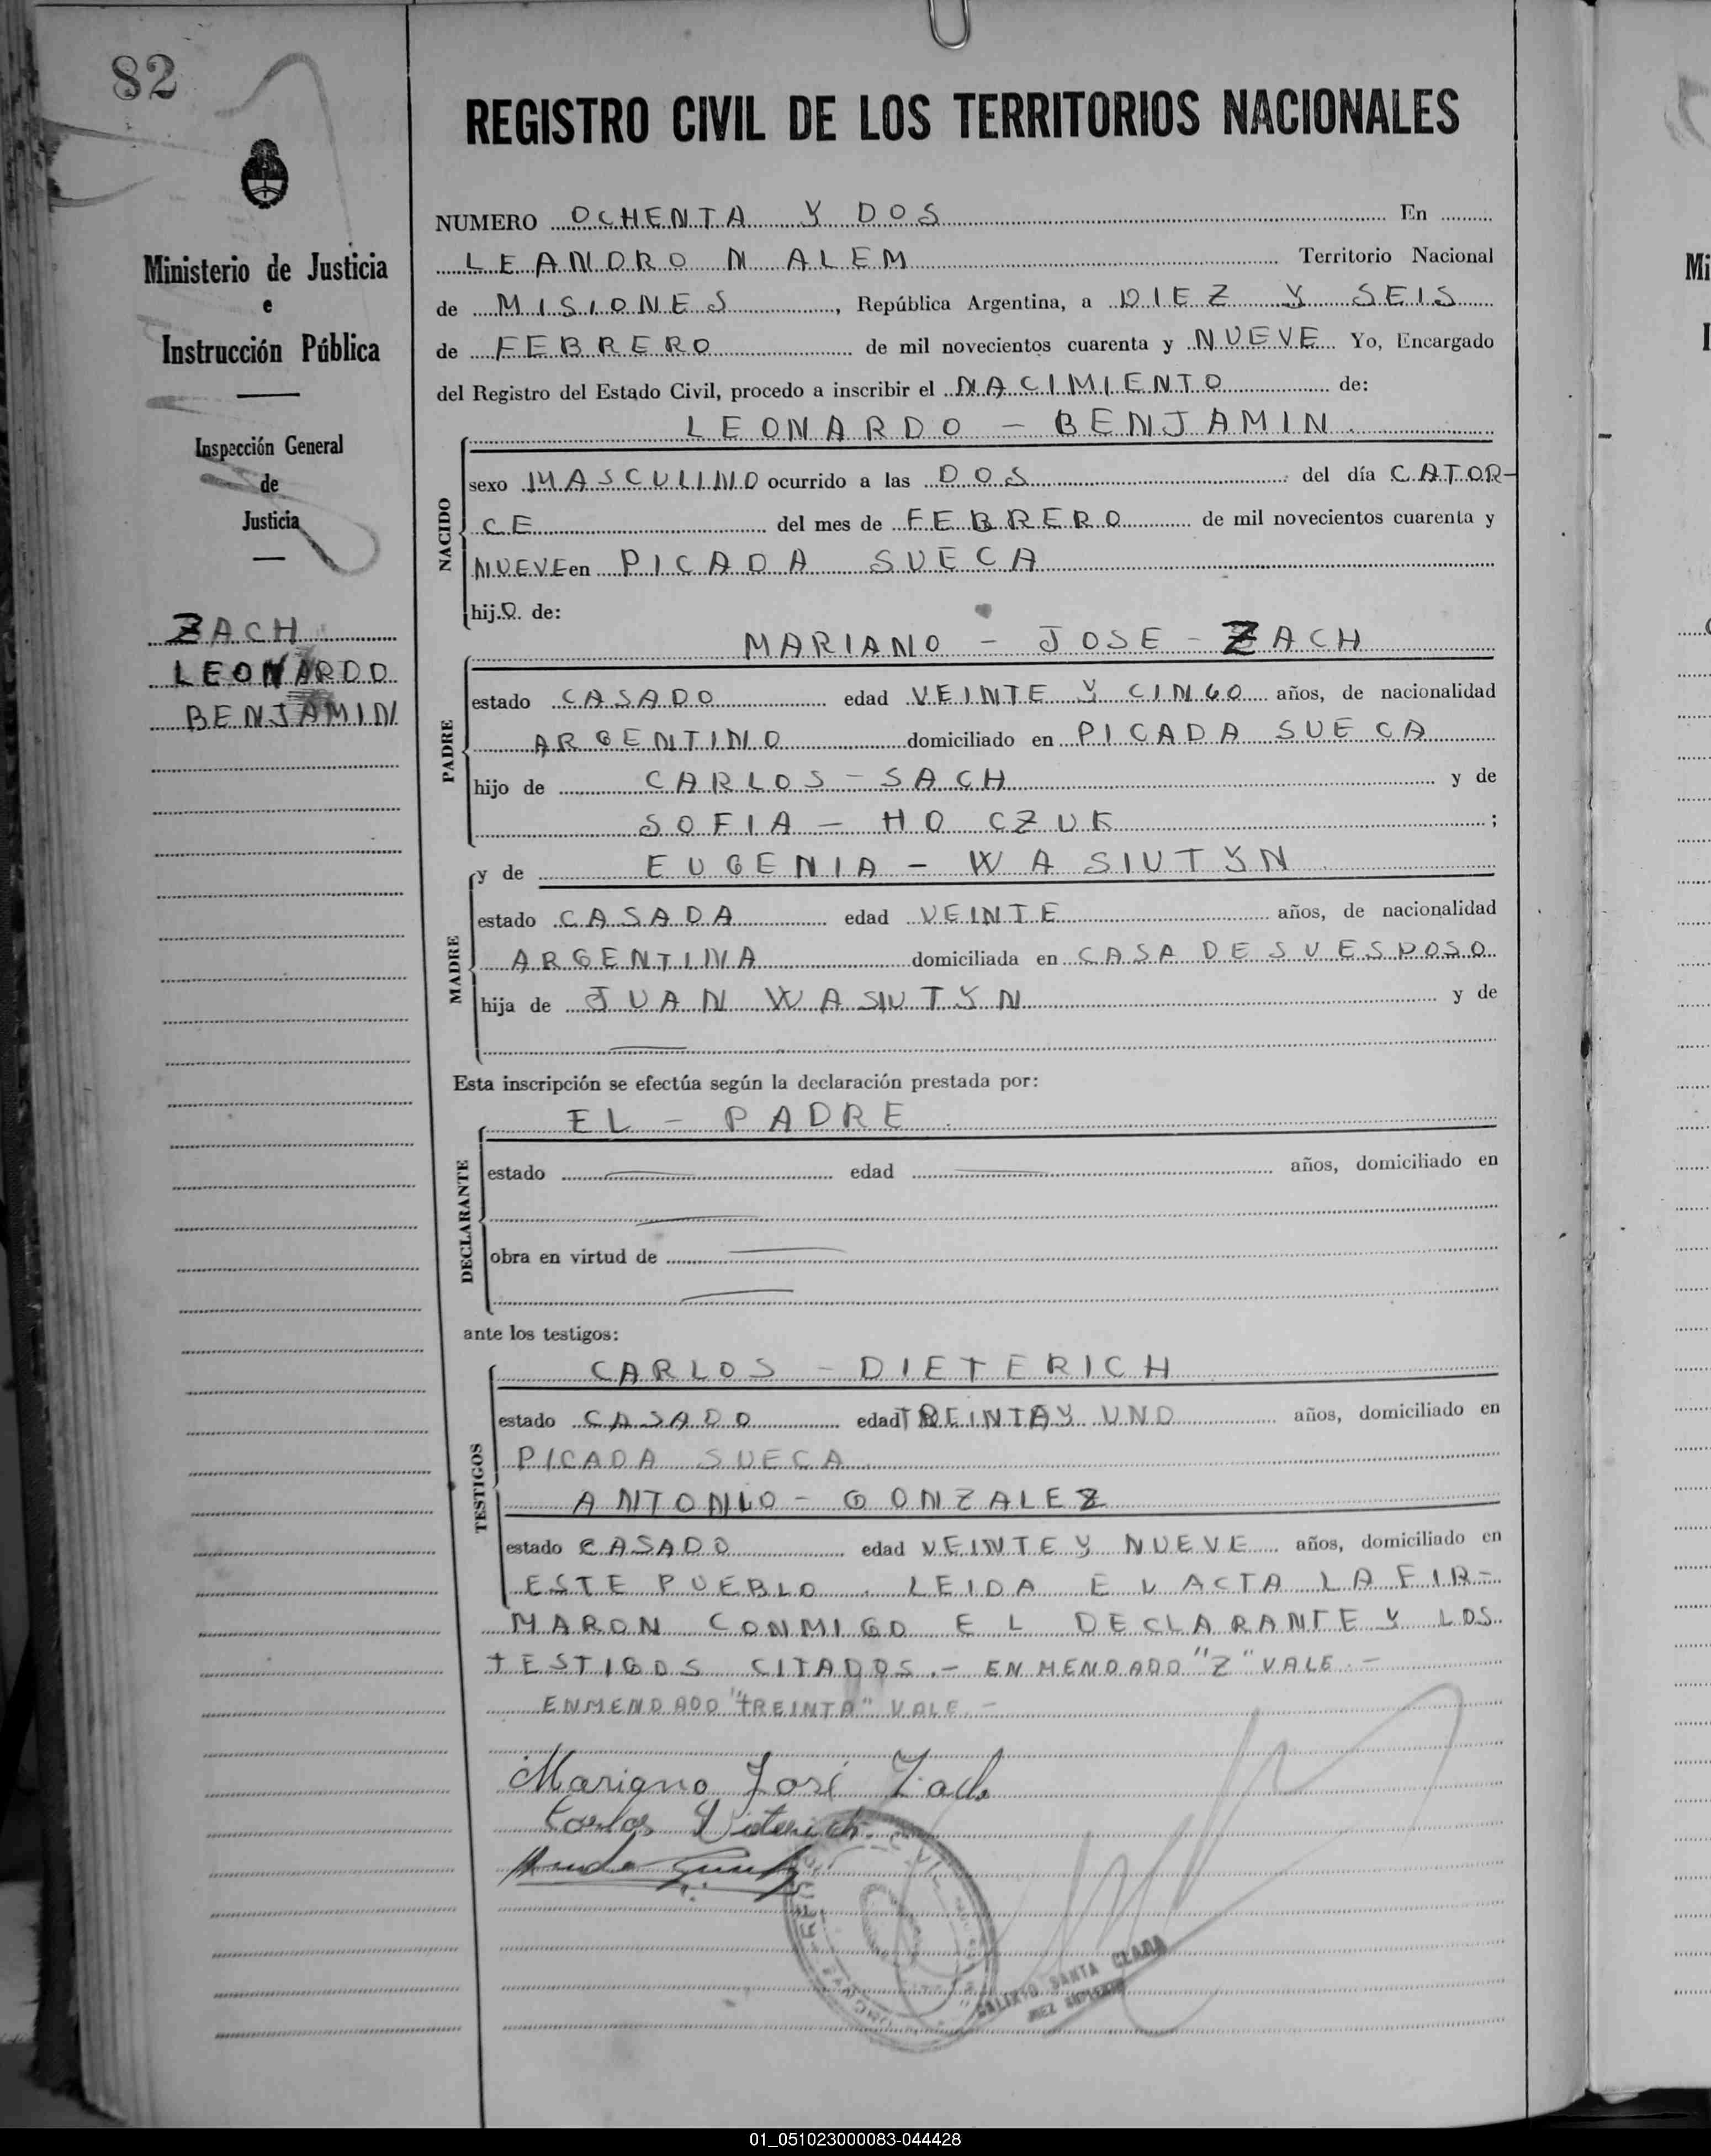 82
REGISTRO CIVIL DE LOS TERRITORIOS NACIONALES
Ministerio de Justicia
e
Instrucción Pública
Inspección General
de
Justicia
ZACH
LEONARDO
BENJAMIN
NUMERO OCHENTA Y DOS En
LEANDRO N ALEM Territorio Nacional
de MISIONES, República Argentina, a DIEZ Y SEIS
de FEBRERO de mil novecientos cuarenta y NUEVE Yo, Encargado
del Registro del Estado Civil, procedo a inscribir el NACIMIENTO de:
NACIDO
LEONARDO - BENJAMIN
sexo MASCULINO ocurrido a las DOS del día CATOR-
CE del mes de FEBRERO de mil novecientos cuarenta y
NUEVE en PICADA SUECA
hijO de:
PADRE
MARIANO - JOSE - ZACH
estado CASADO edad VEINTE Y CINCO años, de nacionalidad
ARGENTINO domiciliado en PICADA SUECA
hijo de CARLOS - SACH y de
SOFIA - HO CZUK ;
MADRE
y de EUGENIA - WASIUTYN
estado CASADA edad VEINTE años, de nacionalidad
ARGENTINA domiciliada en CASA DE SU ESPOSO
hija de JUAN WASIUTYN y de
Esta inscripción se efectúa según la declaración prestada por:
DECLARANTE
EL - PADRE
estado edad años, domiciliado en
obra en virtud de
ante los testigos:
TESTIGOS
CARLOS - DIETERICH
estado CASADO edad TREINTA Y UNO años, domiciliado en
PICADA SUECA
ANTONIO - GONZALEZ
estado CASADO edad VEINTE Y NUEVE años, domiciliado en
ESTE PUEBLO. LEIDA EL ACTA LA FIR-
MARON CONMIGO EL DECLARANTE Y LOS
TESTIGOS CITADOS.- ENMENDADO "Z" VALE.-
ENMENDADO "TREINTA" VALE.-
Mariano José Zach
Carlos Dieterich
SANTA CLARA
JUEZ
01_051023000083-044428